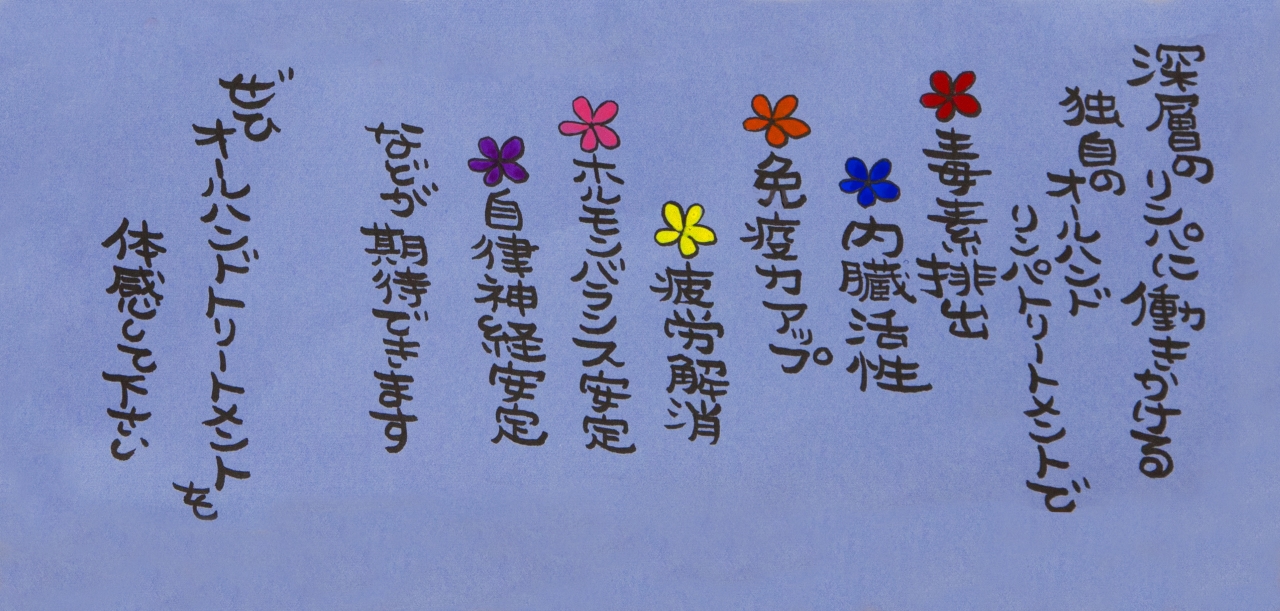 深層のリンパに働きかける
独自のオールハンド
リンパトリートメントで
毒素排出
内臓活性
免疫力アップ
疲労解消
ホルモンバランス安定
自律神経安定
などが期待できます
ぜひオールハンドトリートメントを
体感して下さい